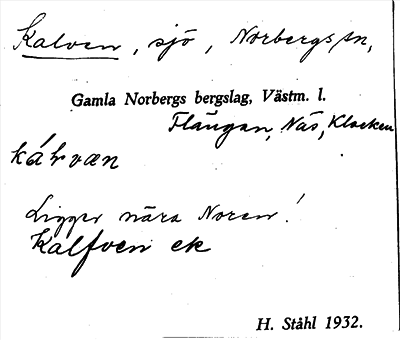 Kalven, sjö, Norbergs sn,
Gamla Norbergs bergslag, Västm. l.
Flängan, Näs, Klacken
kálvan
Ligger nära Noren!
Kalfven ek
H. Ståhl 1932.